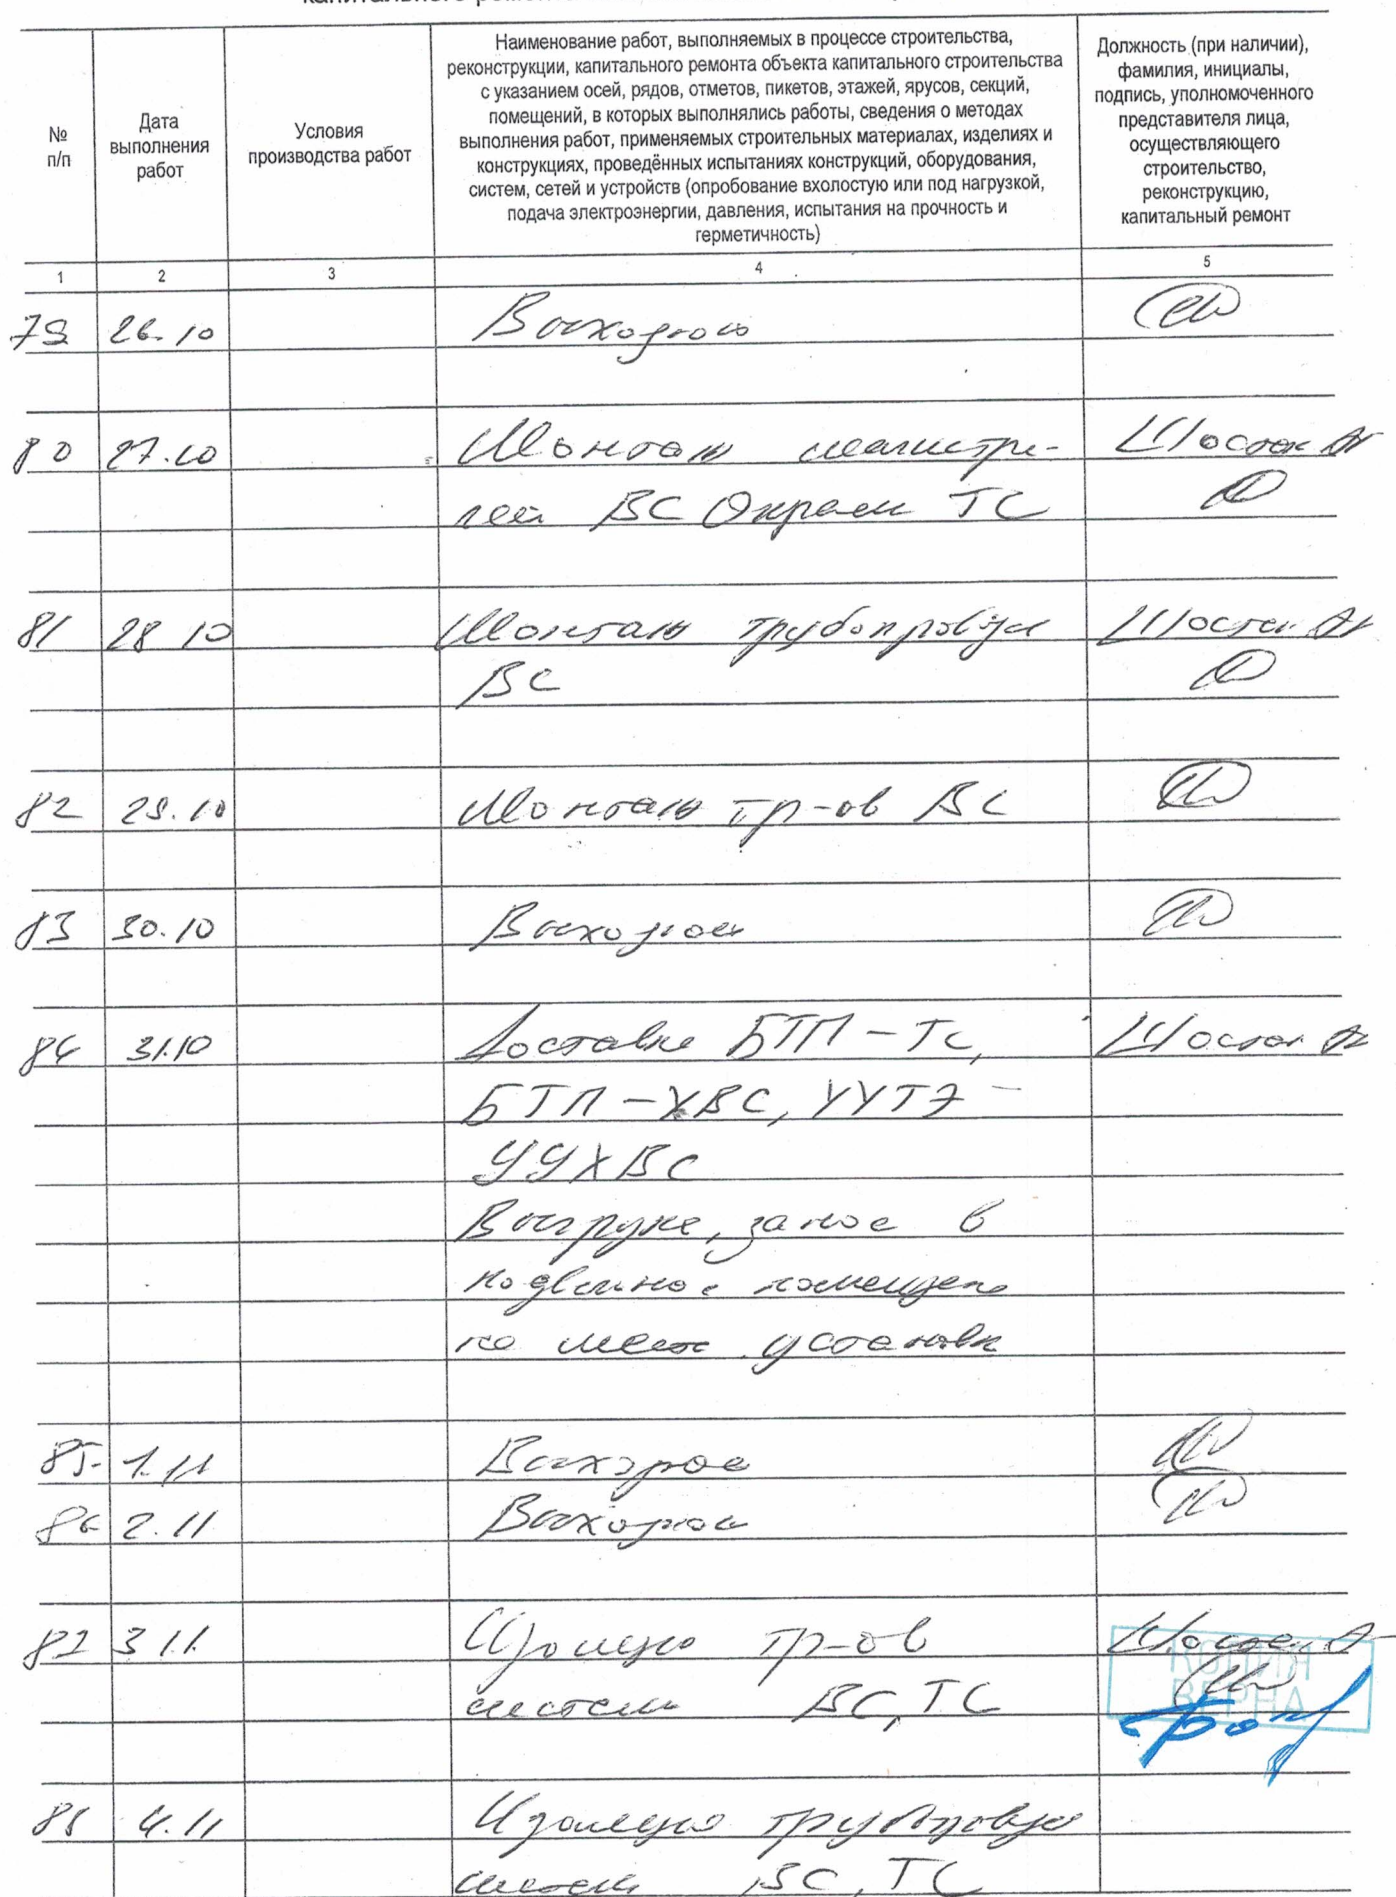 № п/п
Дата выполнения работ
Условия производства работ
Наименование работ, выполняемых в процессе строительства,
реконструкции, капитального ремонта объекта капитального строительства
с указанием осей, рядов, отметов, пикетов, этажей, ярусов, секций,
помещений, в которых выполнялись работы, сведения о методах
выполнения работ, применяемых строительных материалах, изделиях и
конструкциях, проведённых испытаниях конструкций, оборудования,
систем, сетей и устройств (опробование вхолостую или под нагрузкой,
подача электроэнергии, давления, испытания на прочность и
герметичность)
Должность (при наличии),
фамилия, инициалы,
подпись, уполномоченного
представителя лица,
осуществляющего
строительство,
реконструкцию,
капитальный ремонт
1 2 3 4 5
79 26.10 Выходной
80 27.10 Монтаж магистра-
лей ВС Окраска ТС
81 28 10 Монтаж трубопровода
ВС
82 29.10 Монтаж тр-ов ВС
83 30.10 Выходной
84 31.10 Доставка БТП-ТС,
БТП-ХВС, УУТЭ
УУХВС
Выгрузка, занос в
подвальное помещение
на место установки
85 1.11 Выходной
86 2.11 Выходной
87 3 11. Изоляция тр-ов
систем ВС, ТС
КОПИЯ
ВЕРНА
88 4.11 Изоляция трубопровода
систем ВС, ТС